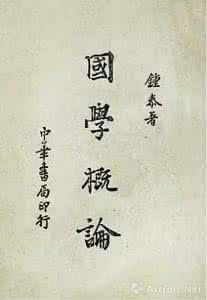 鍾泰著
國學概論
中華書局印行
Artron.Net